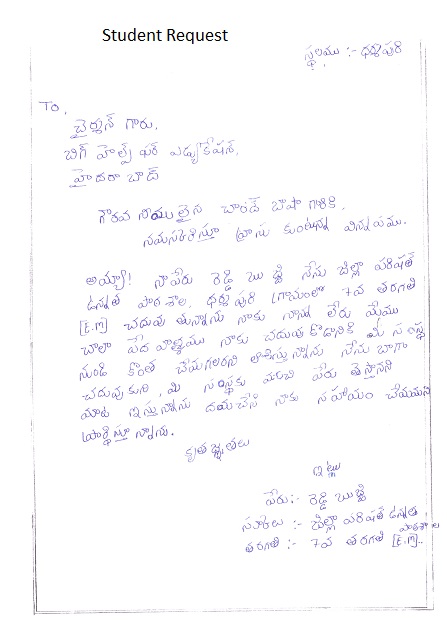 Student Request
స్థలము :- ధర్మపురి
To,
చైర్మన్ గారు.
బిగ్ హెల్ప్ ఫర్ ఎడ్యుకేషన్,
హైదరాబాద్
గౌరవ నీయులైన చాండ్ బాషా గారికి.
నమస్కరిస్తూ వ్రాసు కుంటున్న విన్నపము.
అయ్యా! నా పేరు రెడ్డి బుజ్జి నేను జిల్లా పరిషత్
ఉన్నత పాఠశాల. ధర్మపురి గ్రామంలో 7వ తరగతి
[E.M] చదువు తున్నాను నాకు నాన్న లేరు మేము
చాలా పేద వాళ్ళము నాకు చదువు కొడానికి మీ సంస్థ
నుండి కొంత చేయగలరని ఆశిస్తున్నాను నేను బాగా
చదువుకుని, మీ సంస్థకు మంచి పేరు తెస్తానని
మాట ఇస్తున్నాను దయచేసి నాకు సహాయం చేయమని
ప్రార్థిస్తూ న్నాను.
కృతజ్ఞతలు
ఇట్లు
పేరు:- రెడ్డి బుజ్జి
స్కూలు :- జిల్లా పరిషత్ ఉన్నత పాఠశాల
తరగతి :- 7వ తరగతి [E.M]..